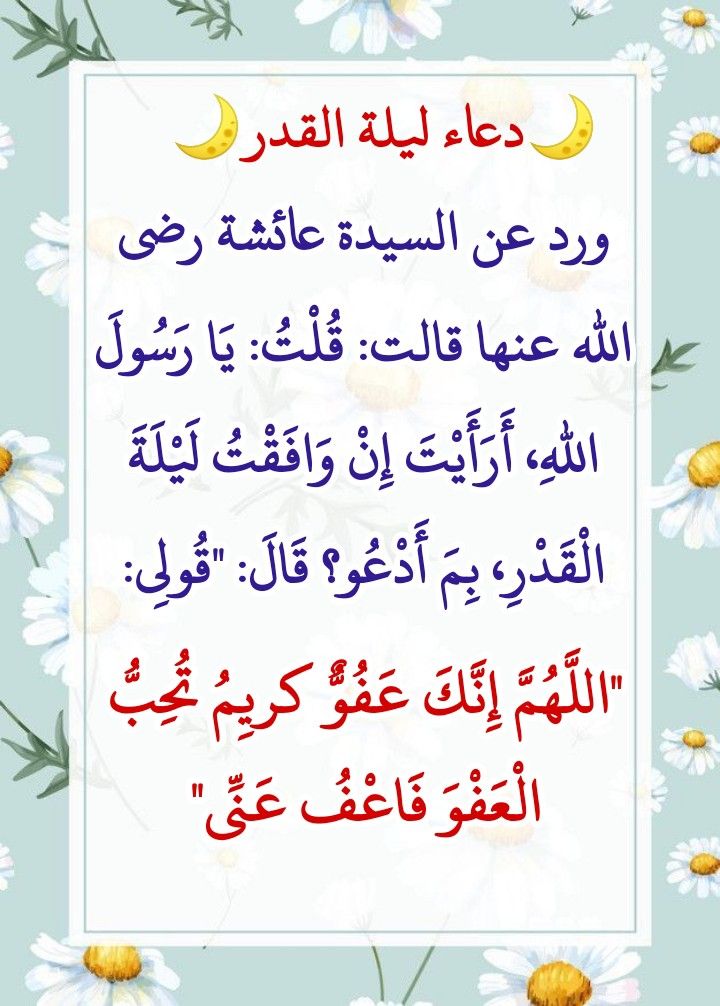 🌙دعاء ليلة القدر🌙
ورد عن السيدة عائشة رضى
الله عنها قالت: قُلْتُ: يَا رَسُولَ
اللهِ، أَرَأَيْتَ إِنْ وَافَقْتُ لَيْلَةَ
الْقَدْرِ، بِمَ أَدْعُو؟ قَالَ: "قُولِى:
"اللَّهُمَّ إِنَّكَ عَفُوٌّ كريِمُ تُحِبُّ
الْعَفْوَ فَاعْفُ عَنِّى"